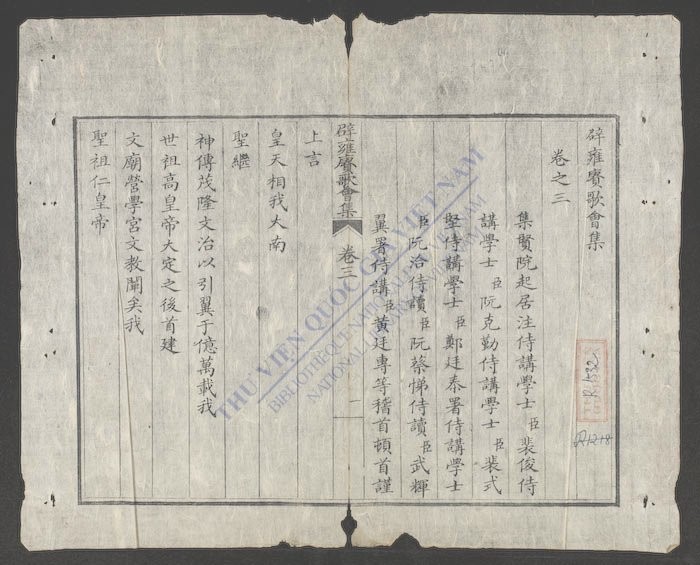 辟雍賡歌會集
卷之三
集賢院起居注侍講學士臣裴俊侍
講學士臣阮克勤侍講學士臣裴式
堅侍講學士臣鄭廷泰署侍講學士
臣阮洽侍讀臣阮蔡悌侍讀臣武輝
翼署侍講臣黃廷專等稽首頓首謹
辟雍賡歌會集 卷三 一
上言
皇天相我大南
聖繼
神傳茂隆文治以引翼于億萬載我
世祖高皇帝大定之後首建
文廟營學宮文教闡矣我
聖祖仁皇帝
R.1532
R1218
THƯ VIỆN QUỐC GIA VIỆT NAM
BIBLIOTHÈQUE NATIONALE DU VIETNAM
NATIONAL LIBRARY OF VIETNAM